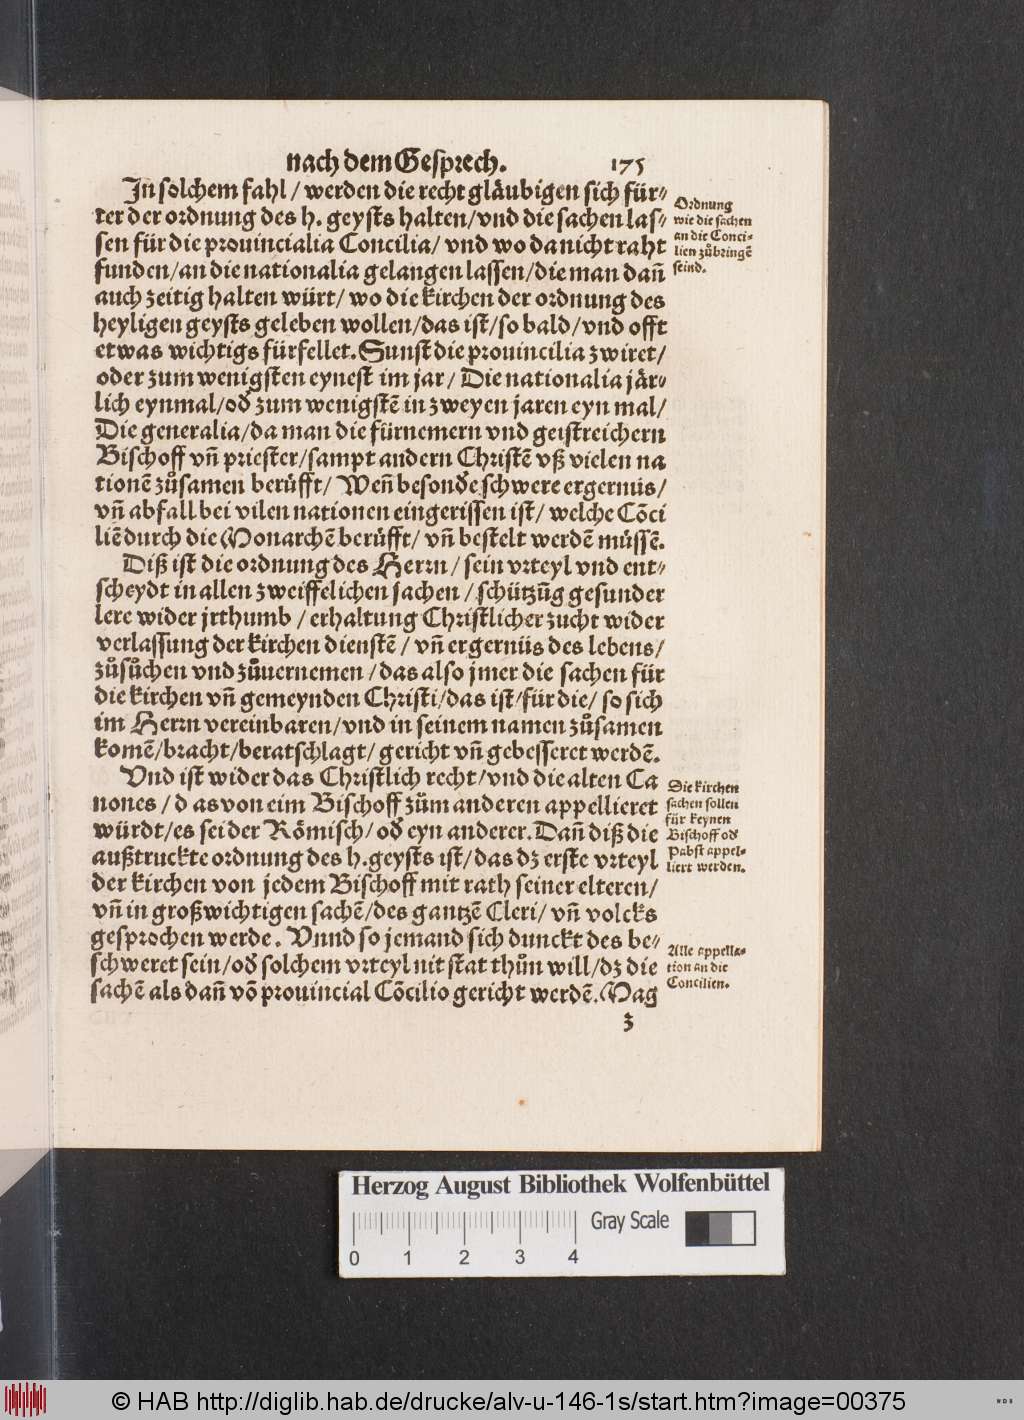 nach dem Gesprech. 175
In solchem fahl / werden die recht gläubigen sich für-
ter der ordnung des h. geysts halten/vnd die sachen las-
sen für die prouincialia Concilia/ vnd wo da nicht raht
funden/an die nationalia gelangen lassen/die man dañ
auch zeitig halten würt/ wo die kirchen der ordnung des
heyligen geysts geleben wollen/das ist/so bald/vnd offt
etwas wichtigs fürfellet. Sunst die prouincilia zwiret/
oder zum wenigsten eynest im jar/ Die nationalia jär-
lich eynmal/od̕ zum wenigstē in zweyen jaren eyn mal/
Die generalia/da man die fürnemern vnd geistreichern
Bischoff vñ priester/sampt andern Christē vß vielen na
tionē zůsamen berůfft/ Weñ besond̕e schwere ergernüs/
vñ abfall bei vilen nationen eingerissen ist/ welche Cōci
liē durch die Monarchē berůfft/ vñ bestelt werdē můssē.
Diß ist die ordnung des Herrn/ sein vrteyl vnd ent-
scheydt in allen zweiffelichen sachen / schützūg gesunder
lere wider jrthumb / erhaltung Christlicher zucht wider
verlassung der kirchen dienstē / vñ ergernüs des lebens/
zůsůchen vnd zůuernemen /das also jmer die sachen für
die kirchen vñ gemeynden Christi/das ist/für die/ so sich
im Herrn vereinbaren/vnd in seinem namen zůsamen
komē/bracht/beratschlagt/ gericht vñ gebesseret werdē.
Vnd ist wider das Christlich recht/vnd die alten Ca
nones / d as von eim Bischoff zům anderen appellieret
würdt/es sei der Römisch/ od̕ eyn anderer. Dañ diß die
außtruckte ordnung des h. geysts ist/das dz erste vrteyl
der kirchen von jedem Bischoff mit rath seiner elteren/
vñ in großwichtigen sachē/des gantzē Cleri/ vñ volcks
gesprochen werde. Vnnd so jemand sich dunckt des be-
schweret sein/od̕ solchem vrteyl nit stat thůn will/dz die
sachē als dañ vō prouincial Cōcilio gericht werdē. Mag
z
Ordnung
wie die sachen
an die Conci-
lien zůbringē
seind.
Die kirchen
sachen sollen
für keynen
Bischoff od̕
Pabst appel-
liert werden.
Alle appella-
tion an die
Concilien.
Herzog August Bibliothek Wolfenbüttel
Gray Scale
0 1 2 3 4
© HAB http://diglib.hab.de/drucke/alv-u-146-1s/start.htm?image=00375